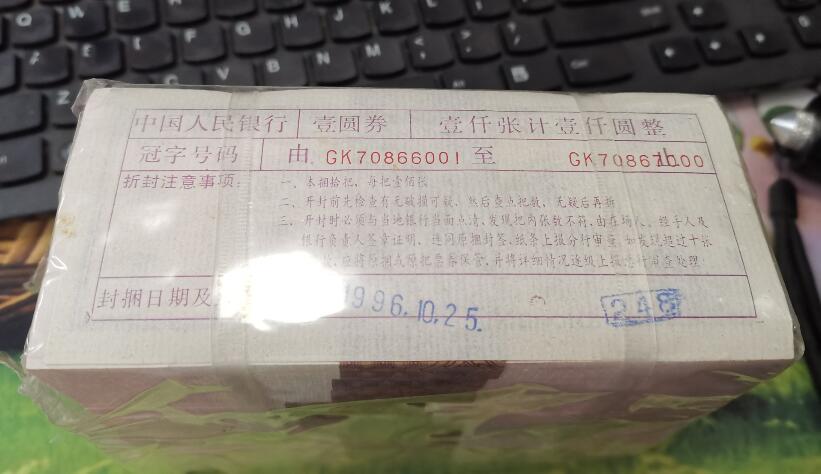 中国人民银行 壹圆券 壹仟张计壹仟圆整
冠字号码 由 GK70866001 至 GK70867000 止
折封注意事项：
一、本捆拾把，每把壹佰张
二、开封前先检查有无破损可疑，然后查点把数，无疑后再拆
三、开封时必须与当地银行当面点清，发现把内张数不符，由在场人、经手人及
银行负责人签章证明，连同原捆封签、纸条上报分行审查，如发现超过十张
应将原捆或原把票券保管，并将详细情况逐级上报
封捆日期及 1996.10.25. 248